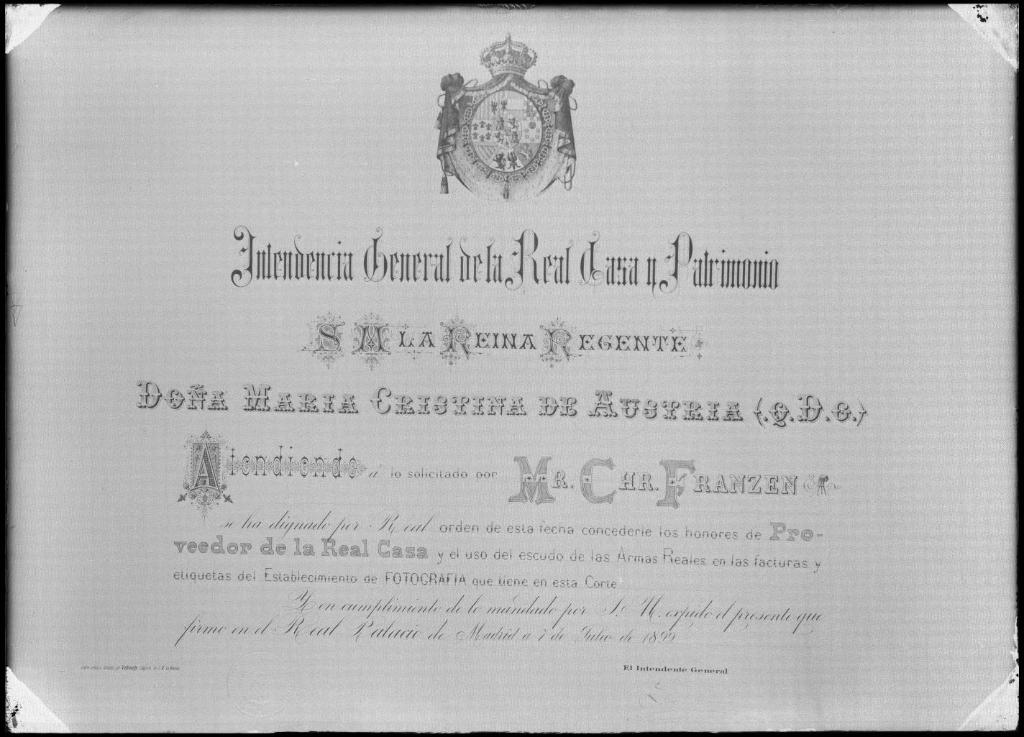 Intendencia General de la Real Casa y Patrimonio
S M LA REINA REGENTE
DOÑA MARIA CRISTINA DE AUSTRIA (.Q.D.G.)
Atendiendo á lo solicitado por MR. CHR. FRANZEN
se ha dignado por Real orden de esta fecha concederle los honores de Pro-
veedor de la Real Casa y el uso del escudo de las Armas Reales en las facturas y
etiquetas del Establecimiento de FOTOGRAFIA que tiene en esta Corte
Y en cumplimiento de lo mandado por S. M. expido el presente que
firmo en el Real Palacio de Madrid a 7 de Julio de 1899
El Intendente General